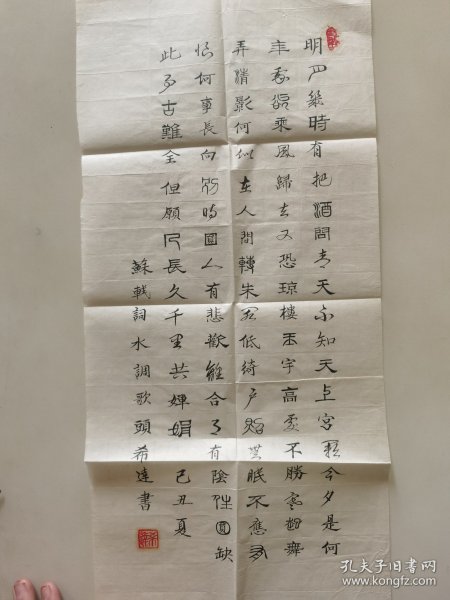 明月幾時有把酒問青天不知天上宮闕今夕是何
年我欲乘風歸去又恐瓊樓玉宇高處不勝寒起舞
弄清影何似在人間轉朱閣低綺户照無眠不應有
恨何事長向别時圓人有悲歡離合月有陰性圓缺
此事古難全但願人長久千里共嬋娟 己丑夏
蘇軾詞水調歌頭希達書
孔夫子旧书网
www.kongfz.com